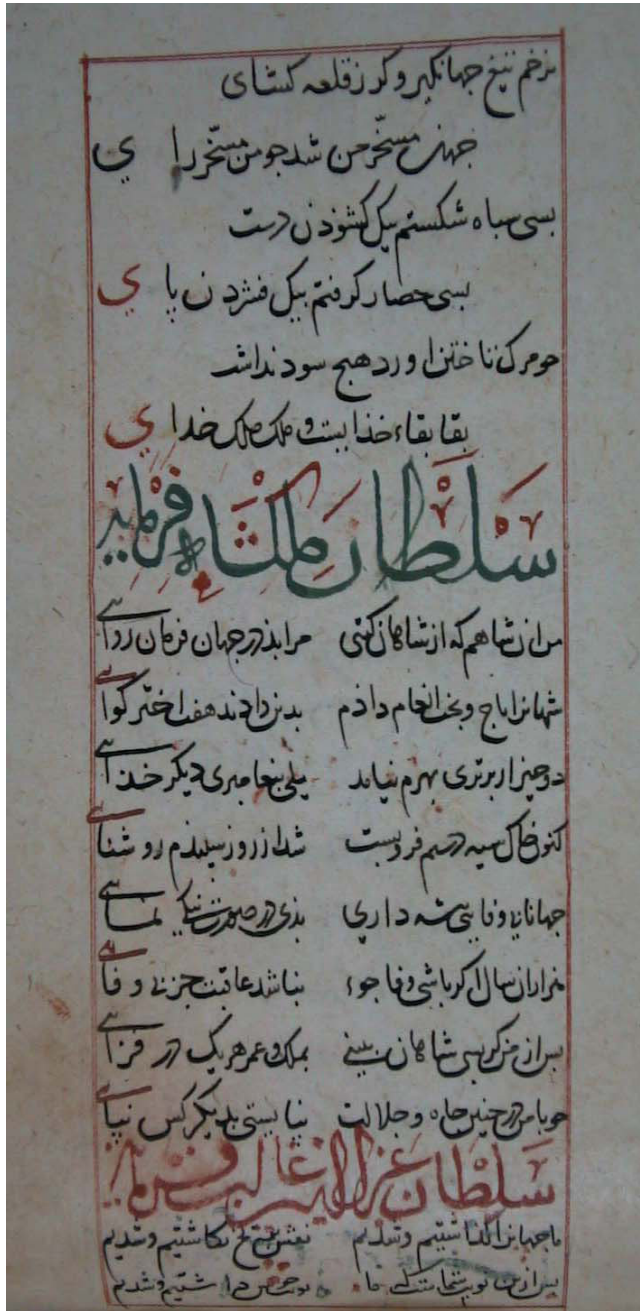 بزخم تیغ جهانکیر و کرز قلعه کشای
جهان مسخر من شد جو من مسخر رای
بسی سباه شکستم بیک کشوذن دست
بسی حصار کرفتم بیک فشردن پای
جو مرک تاختن اورد هیج سود نداشت
بقا بقاء خذایست و ملک ملک خدای
سلطان ملکشاه فرماید
من ان شاهم که از شاهان کیتی مرا بذ در جهان فرمان روایی
شهانرا باج و تخت انعام داذم بدین دادند هفت اختر کوایی
دو جیز از برتری بهرم نیامد یکی بیغامبری دیکر خذایی
کنون خاک سیه جشمم فرو بست شد از روز سبیدم روشنایی
جهانا بی وفایی بیشه داری بذی در صورت نیکی نمایی
هزاران سال اکر باشی وفا جوء نباشد عاقبت جز بی وفایی
بس از من کر بسی شاهان ببینی بملک و عمر هر یک در فزایی
جو با من در جنین جاه و جلالت نبایستی بدیکر کس نبایی
سلطان فرماید
ما جهانرا کذاشتیم و شدیم نقش نکاشتیم و شدیم
بس ازین نوبت شماست که ما نوبت خویش داشتیم و شدیم